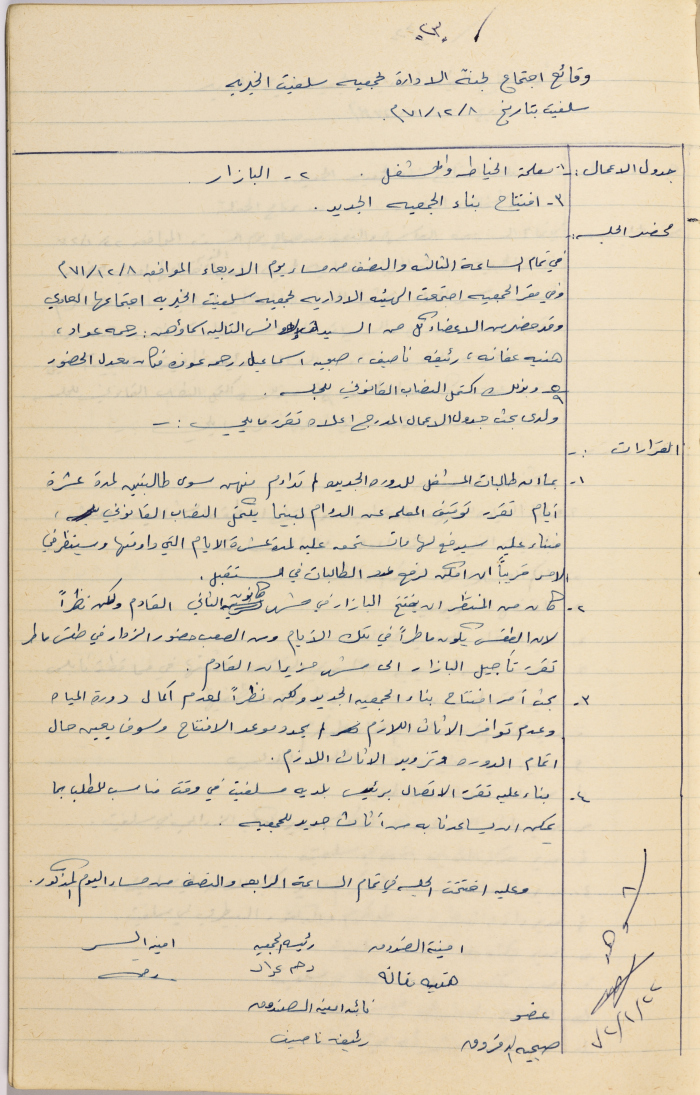 "٣"
وقائع اجتماع لجنة الادارة لجمعيه سلفيت الخيريه
سلفيت بتاريخ ٧١/١٢/٨م
جدول الاعمال :- ١- معلمة الخياطه والمشغل . ٢- البازار .
٣- افتتاح بناء الجمعيه الجديد .
محضر الجلسه :-
في تمام الساعة الثالثه والنصف من مساء يوم الاربعاء الموافق ٧١/١٢/٨م
وفي مقر الجمعيه اجتمعت الهيئه الاداريه لجمعيه سلفيت الخيريه اجتماعها العادي
وقد حضر من الاعضاء كل من السيدات والاوانس التاليه اسماؤهن : رحمه عواد ،
هنيه عفانه ، رئيفه ناصيف ، صبحيه اسماعيل ، رحمه عوده فكان معدل الحضور
٥/٩ وبذلك اكتمل النصاب القانوني للجلسه .
ولدى بحث جدول الاعمال المدرج اعلاه تقرر مايلي :-
القرارات :-
١- بما ان طالبات المشغل للدوره الجديده لم تداوم منهن سوى طالبتين لمدة عشرة
أيام تقرر توقيف المعلمه عن الدوام لبينما يكتمل النصاب القانوني ،
فبناء عليه سيدفع لها ما تستحق عليه لمدة عشرة الايام التي داومتها وسينظر في
الامر قريباً ان امكن لرفع عدد الطالبات في المستقبل .
٢- كان من المنتظر ان يفتتح البازار في شهر كانون الثاني القادم ولكن نظراً
لان الطقس يكون ماطراً في تلك الأيام ومن الصعب حضور الزوار في طقس ماطر
تقرر تأجيل البازار الى شهر حزيران القادم .
٣- بحث أمر افتتاح بناء الجمعيه الجديد ولكن نظراً لعدم اكمال دورة المياه
وعدم توافر الاثاث اللازم لم يحدد موعد الافتتاح وسوف يعين حال
اتمام الدوره وتزويد الاثاث اللازم .
٤- بناء عليه تقرر الاتصال برئيس بلديه سلفيت في وقت مناسب للطلب بما
يمكن ان يساعدنا به من أثاث جديد للجمعيه .
وعليه اختتمت الجلسه في تمام الساعة الرابعه والنصف من مساء اليوم المذكور .
امينة الصندوق رئيسة الجمعيه امينة السر
هنيه عفانه رحمه عواد
عضو نائبه امينة الصندوق
صبحيه رئيفه ناصيف